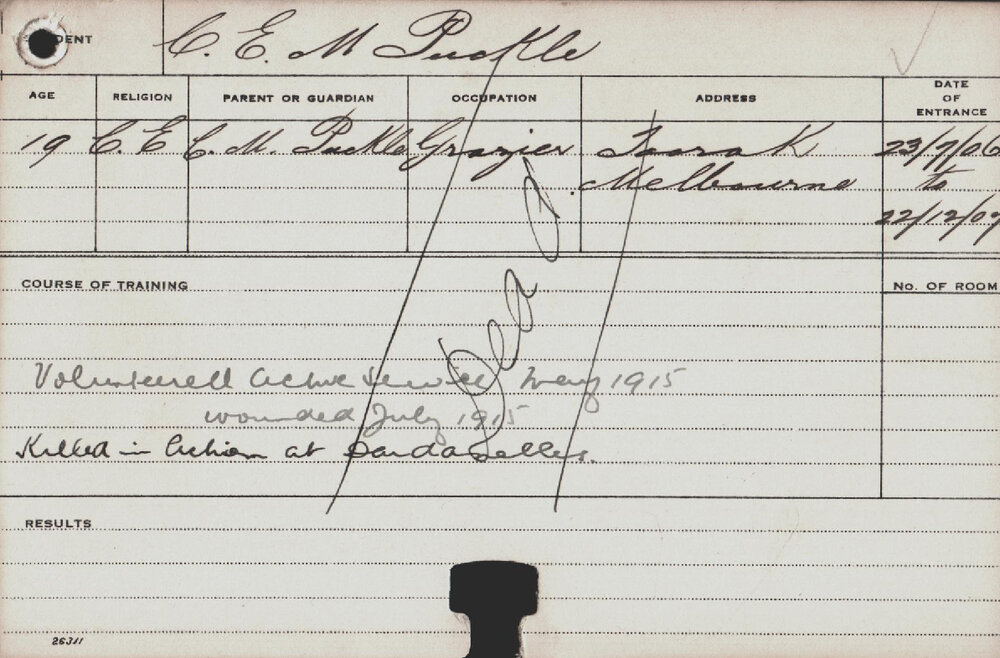 DENT C. E. M Puckle
AGE RELIGION PARENT OR GUARDIAN OCCUPATION ADDRESS DATE OF ENTRANCE
19 C. E C. M. Puckle Grazier Toorak 23/7/06
Melbourne to
22/12/07
Dead
COURSE OF TRAINING No. OF ROOM
Volunteered Active Service May 1915
wounded July 1915
Killed in Action at Dardanelles.
RESULTS
26311